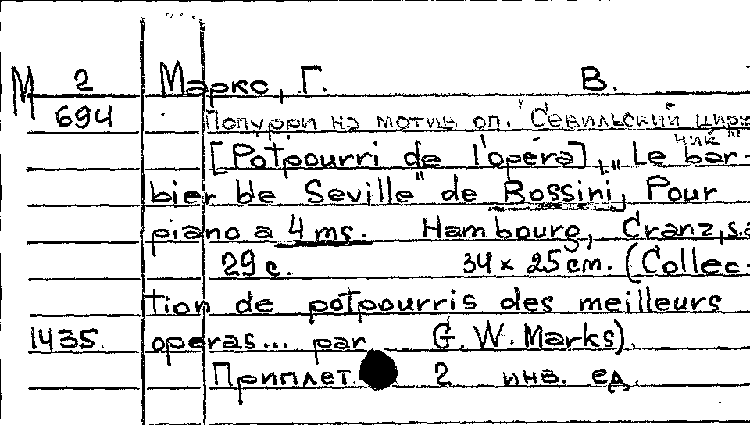 М 2 Маркс, Г. В.
694 Попурри на мотив оп. "Севильский цирюль
чик"
[Potpourri de l'opéra], „Le bar-
bier de Seville" de Rossini, Pour
piano a 4 ms. Hambourg, Cranz, s.a
29 с. 34 x 25 cm. (Collec-
tion de potpourris des meilleurs
1435. operas... par G. W. Marks).
Приплет. 2 инв. ед.